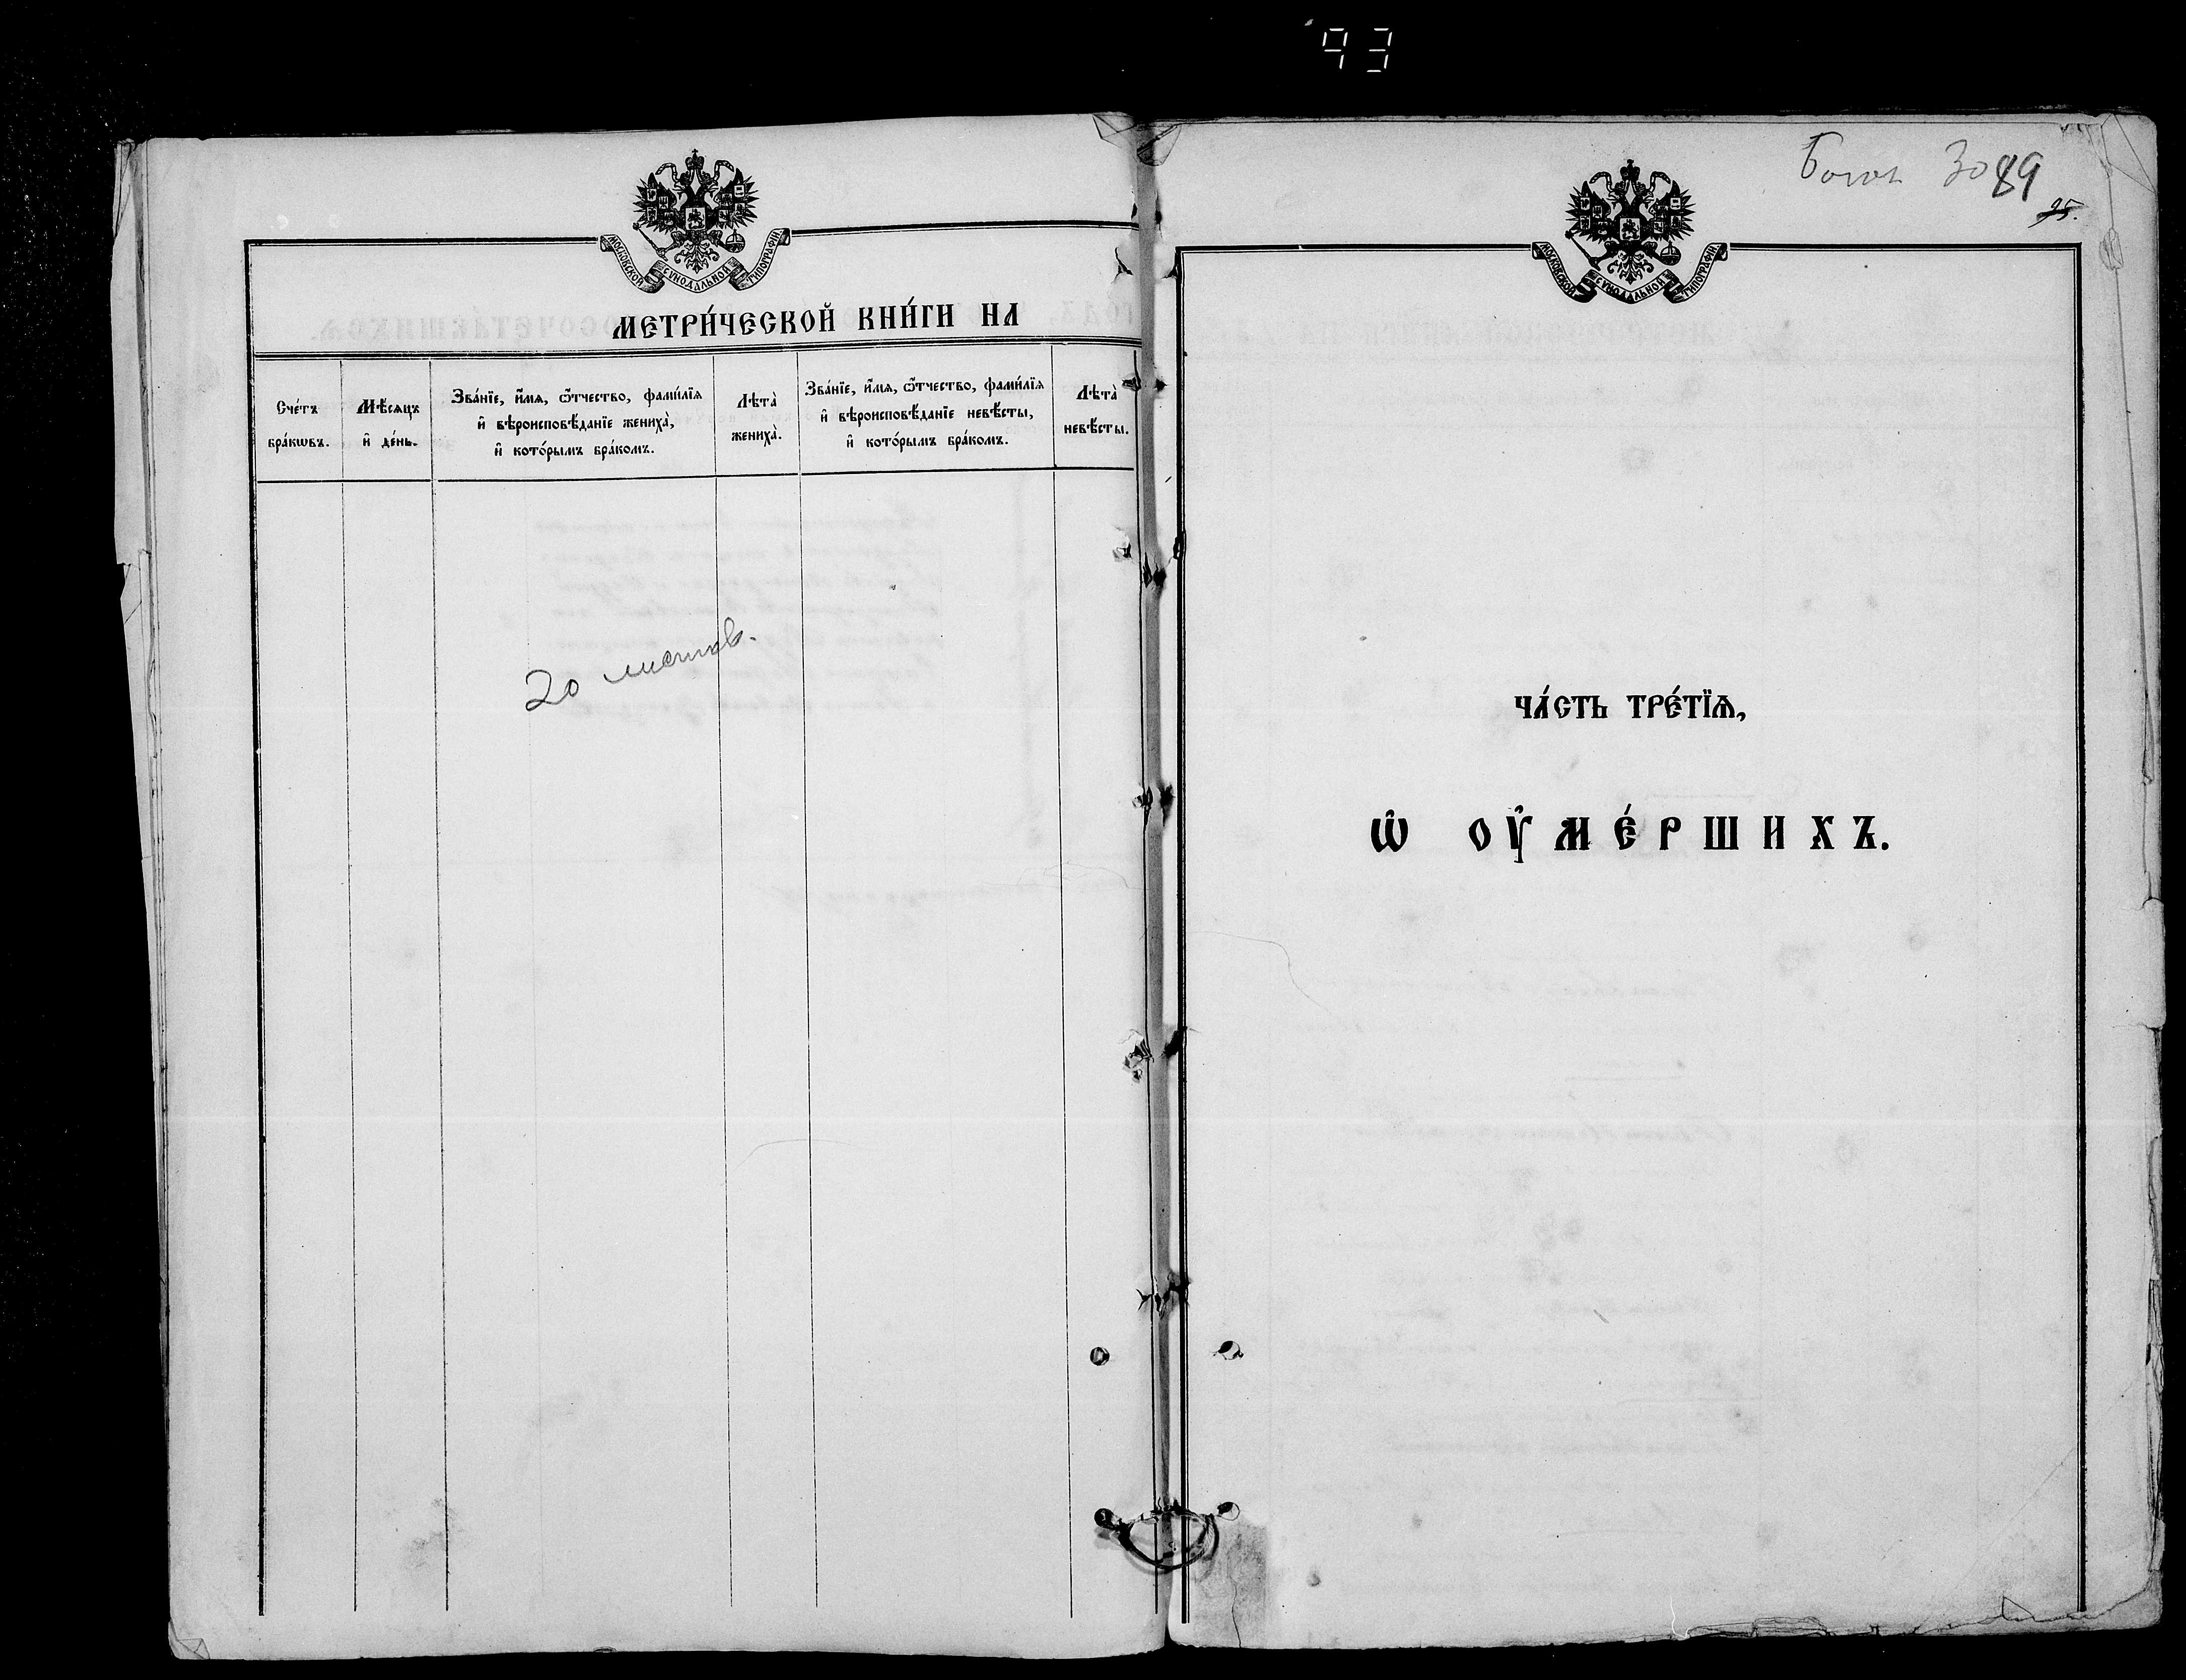 93
МОСКОВСКОЙ СѴНОДАЛЬНОЙ ТИПОГРАФІИ
МЕТРИ́ЧЕСКОЙ КНИ́ГИ НА
Сче́тъ
бра́кѡвъ.
Мѣ́сяцъ
и҆ де́нь.
Зва́нїе, и҆́мя, ѻ҆́тчество, фами́лїя
и҆ вѣроисповѣ́данїе жениха̀,
и҆ кото́рымъ бра́комъ.
Лѣта̀
жениха̀.
Зва́нїе, и҆́мя, ѻ҆́тчество, фами́лїя
и҆ вѣроисповѣ́данїе невѣ́сты,
и҆ кото́рымъ бра́комъ.
Лѣта̀
невѣ́сты.
20 листов.
30 89
95.
МОСКОВСКОЙ СѴНОДАЛЬНОЙ ТИПОГРАФІИ
ЧА́СТЬ ТРЕ́ТЇѦ,
Ѡ҆ ОУ҆МЕ́РШИХЪ.